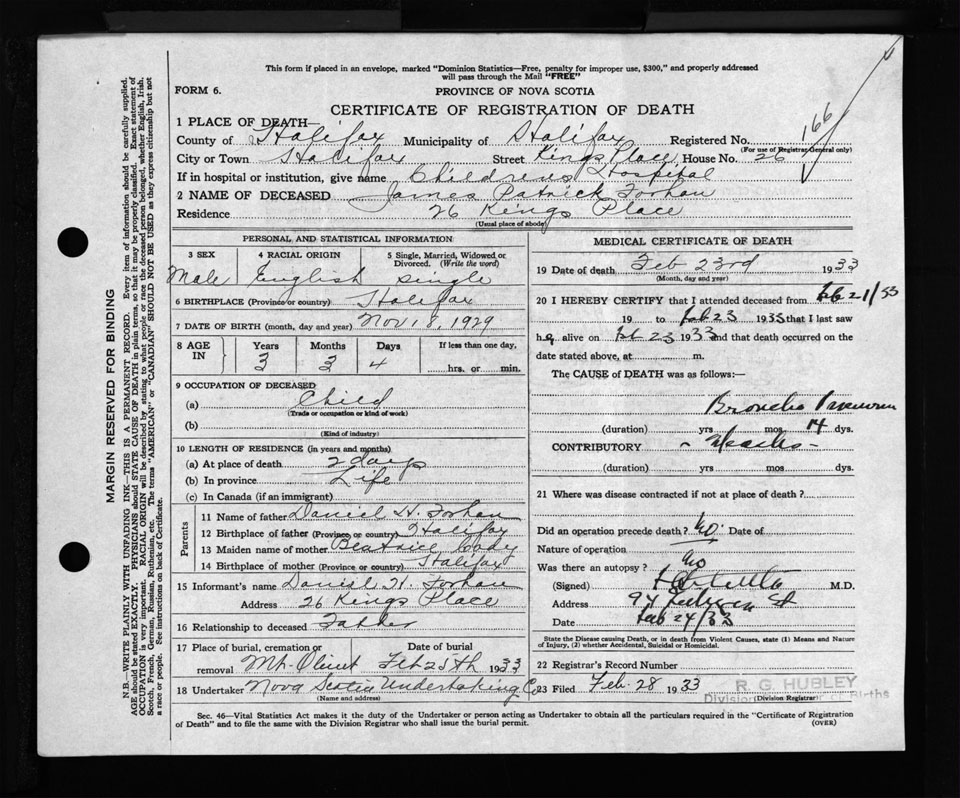 This form if placed in an envelope, marked "Dominion Statistics—Free, penalty for improper use, $300," and properly addressed
will pass through the Mail "FREE"
FORM 6.
PROVINCE OF NOVA SCOTIA
CERTIFICATE OF REGISTRATION OF DEATH
1 PLACE OF DEATH—
County of Halifax Municipality of Halifax Registered No. 166
(For use of Registrar General only)
City or Town Halifax Street Kings Place House No. 26
If in hospital or institution, give name Childrens Hospital
2 NAME OF DECEASED James Patrick Forhan
Residence 26 Kings Place
(Usual place of abode)
PERSONAL AND STATISTICAL INFORMATION
3 SEX 4 RACIAL ORIGIN 5 Single, Married, Widowed or Divorced. (Write the word)
Male English single
6 BIRTHPLACE (Province or country) Halifax
7 DATE OF BIRTH (month, day and year) Nov 18, 1929
8 AGE IN Years Months Days If less than one day,
3 3 4 hrs. or min.
9 OCCUPATION OF DECEASED
(a) Child
(Trade or occupation or kind of work)
(b)
(Kind of industry)
10 LENGTH OF RESIDENCE (in years and months)
(a) At place of death 2 days
(b) In province Life
(c) In Canada (if an immigrant)
Parents
11 Name of father Daniel H. Forhan
12 Birthplace of father (Province or country) Halifax
13 Maiden name of mother Beatrice Cody
14 Birthplace of mother (Province or country) Halifax
15 Informant's name Daniel H. Forhan
Address 26 Kings Place
16 Relationship to deceased Father
17 Place of burial, cremation or removal Mt. Olivet Date of burial Feb 25th 1933
18 Undertaker Nova Scotia Undertaking Co
(Name and address)
MEDICAL CERTIFICATE OF DEATH
19 Date of death Feb 23rd 1933
(Month, day and year)
20 I HEREBY CERTIFY that I attended deceased from Feb 21/33
19 to Feb 23 1933 that I last saw
he alive on Feb 23 1933 and that death occurred on the
date stated above, at m.
The CAUSE of DEATH was as follows:—
Broncho Pneumon
(duration) yrs mos 14 dys.
CONTRIBUTORY Measles
(duration) yrs mos. dys.
21 Where was disease contracted if not at place of death?
Did an operation precede death? No. Date of
Nature of operation
Was there an autopsy? No
(Signed) M.D.
Address 94 St
Date Feb 24/33
State the Disease causing Death, or in death from Violent Causes, state (1) Means and Nature
of Injury, (2) whether Accidental, Suicidal or Homicidal.
22 Registrar's Record Number
23 Filed Feb. 28 1933 R. G. HUBLEY
(Division Registrar)
Sec. 46—Vital Statistics Act makes it the duty of the Undertaker or person acting as Undertaker to obtain all the particulars required in the "Certificate of Registration
of Death" and to file the same with the Division Registrar who shall issue the burial permit.
(OVER)
MARGIN RESERVED FOR BINDING
N.B.—WRITE PLAINLY WITH UNFADING INK—THIS IS A PERMANENT RECORD. Every item of information should be carefully supplied.
AGE should be stated EXACTLY. PHYSICIANS should STATE CAUSE OF DEATH in plain terms, so that it may be properly classified. Exact statement of
OCCUPATION is very important. RACIAL ORIGIN will be described by stating to what people or race the deceased person belonged, whether English, Irish,
Scotch, French, German, Russian, Ruthenian, etc. The terms "AMERICAN" or "CANADIAN" SHOULD NOT BE USED as they express citizenship but not
a race or people. See instructions on back of Certificate.